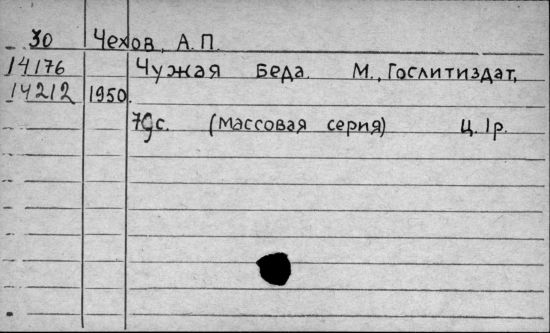 30 Чехов, А. П.
14176 Чужая беда. М., Гослитиздат,
14212 1950.
79с. (массовая серия) Ц. 1р.